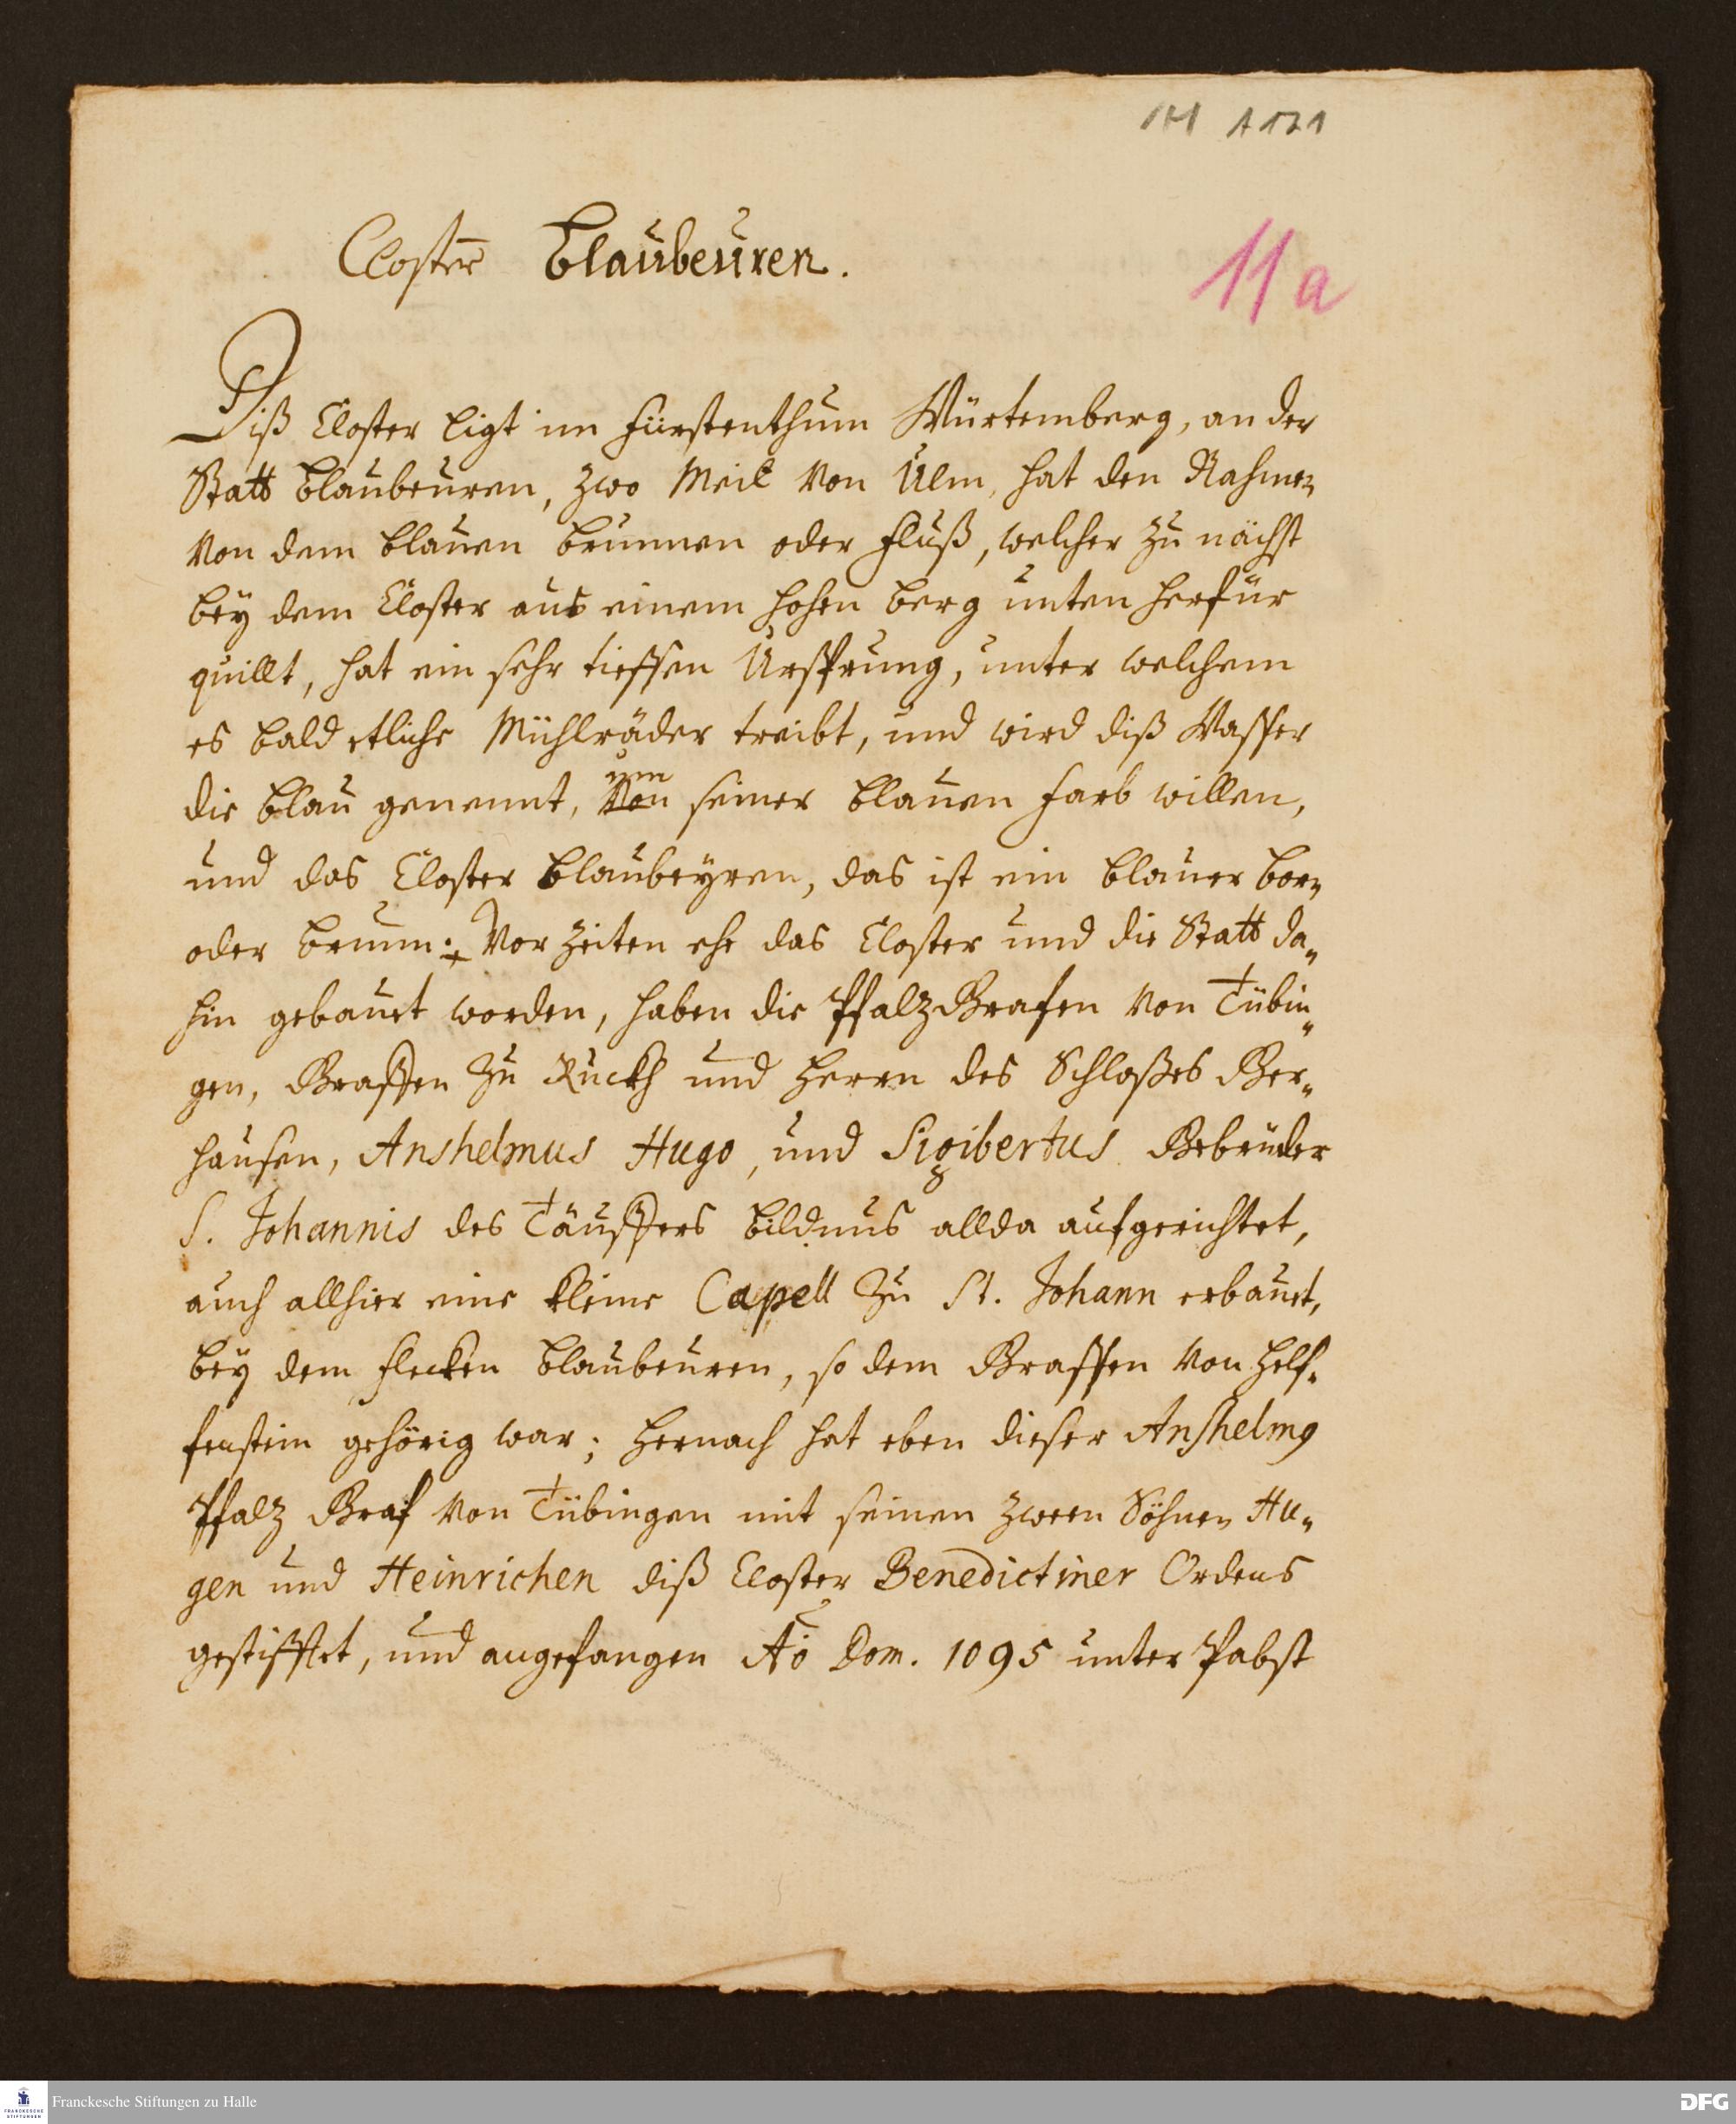 1H A 171
11a
Closter Blaubeuren.
Diß Closter ligt im Fürstenthum Würtemberg, an der
Statt Blaubeuren, zwo Meil von Ulm, hat den Nahmen
von dem blauen brunnen oder Fluß, welcher zu nächst
bey dem Closter aus einem hohen berg unten herfür
quillt, hat ein sehr tieffen Ursprung, unter welchem
es bald etliche Mühlräder treibt, und wird diß Wasser
um
die Blau genennt, von seiner blauen farb willen,
und das Closter Blaubeyren, das ist ein blauer born
oder brunn. Vor Zeiten ehe das Closter und die Statt da„
hin gebauet worden, haben die Pfalz Grafen von Tübin„
gen, Graffen zu Ruckh und Herrn des Schloßes Ger„
hausen, Anshelmus Hugo, und Sigibertus Gebrüder
S. Johannis des Täuffers bildnus allda aufgerichtet,
auch allhier eine kleine Capell zu St. Johann erbauet,
bey dem flecken Blaubeuren, so dem Graffen von Helf„
fenstein gehörig war; hernach hat eben dieser Anshelmꝰ
Pfalz Graf von Tübingen mit seinen zween Söhnen Hu„
gen und Heinrichen diß Closter Benedictiner Ordens
gestifftet, und angefangen Aō Dom. 1095 unter Pabst
FRANCKESCHE STIFTUNGEN
Franckesche Stiftungen zu Halle
DFG